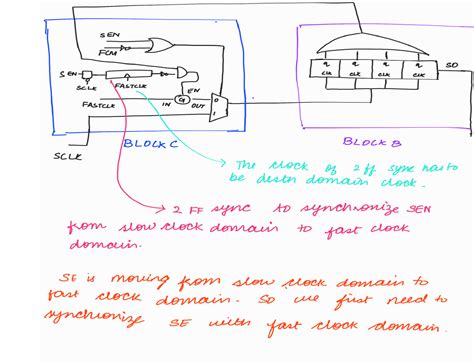 SEN
FCM
SEN
SCLK
FASTCLK
EN
FASTCLK
IN
G
OUT
0
1
SCLK
BLOCK C
q
q
q
q
CLK
CLK
CLK
CLK
SO
BLOCK B
The clock of 2 ff sync has to
be destn domain clock.
2 FF sync to synchronize SEN
from slow clock domain to fast clock
domain.
SE is moving from slow clock domain to
fast clock domain. So we first need to
synchronize SE with fast clock domain.